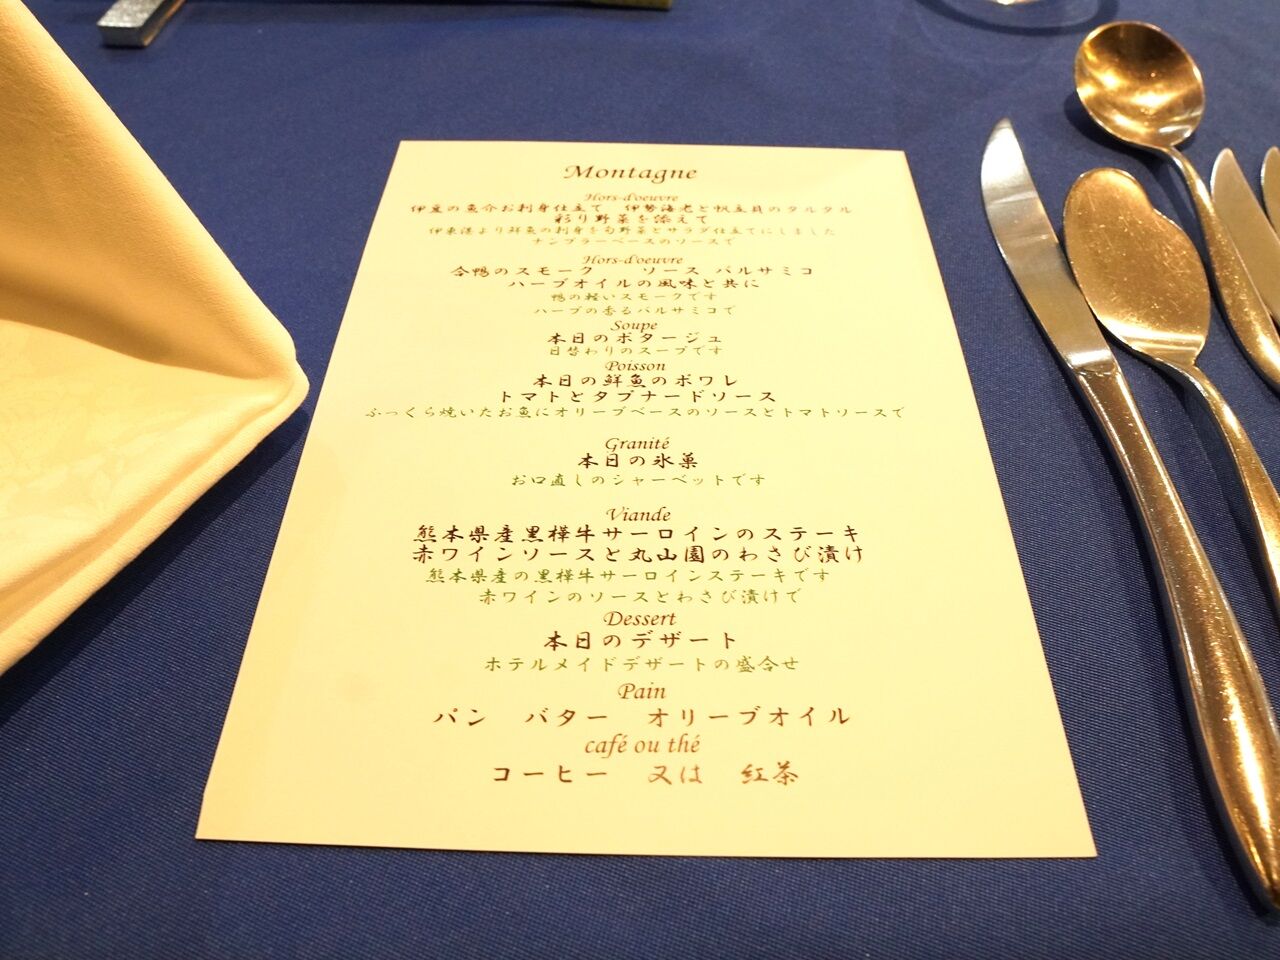 Montagne
Hors-d'oeuvre
伊豆の魚介お刺身仕立て　伊勢海老と帆立貝のタルタル
彩り野菜を添えて
伊東港より鮮魚の刺身を旬野菜とサラダ仕立てにしました
ナンプラーベースのソースで
Hors-d'oeuvre
合鴨のスモーク　ソース バルサミコ
ハーブオイルの風味と共に
鴨の軽いスモークです
ハーブの香るバルサミコで
Soupe
本日のポタージュ
日替わりのスープです
Poisson
本日の鮮魚のポワレ
トマトとタプナードソース
ふっくら焼いたお魚にオリーブベースのソースとトマトソースで
Granité
本日の氷菓
お口直しのシャーベットです
Viande
熊本県産黒樺牛サーロインのステーキ
赤ワインソースと丸山園のわさび漬け
熊本県産の黒樺牛サーロインステーキです
赤ワインのソースとわさび漬けで
Dessert
本日のデザート
ホテルメイドデザートの盛合せ
Pain
パン　バター　オリーブオイル
café ou thé
コーヒー　又は　紅茶